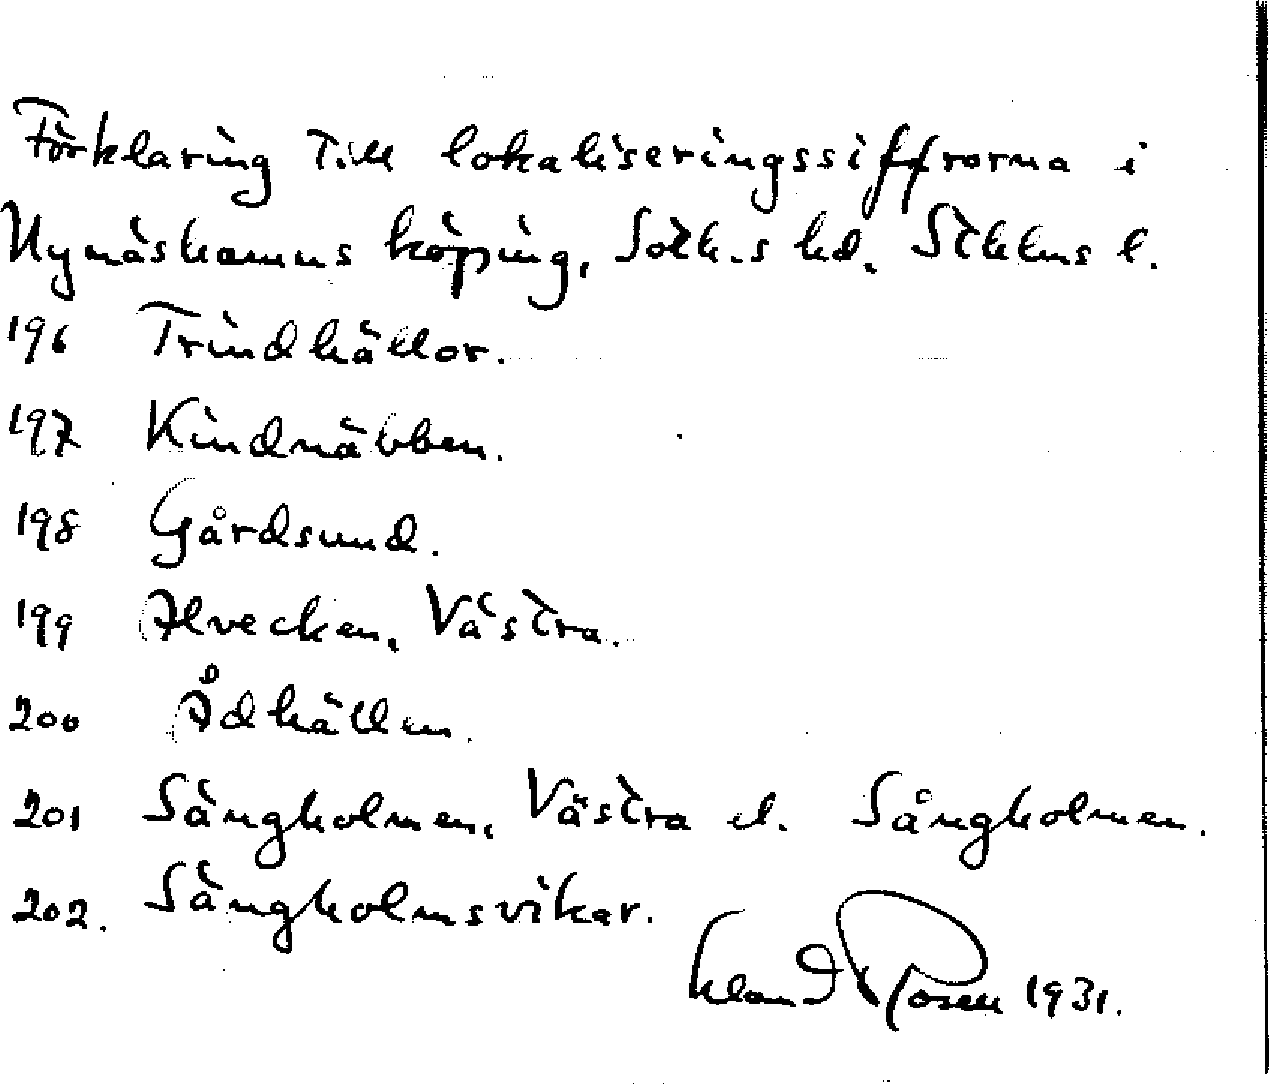 Förklaring till lokaliseringssiffrorna i
Nynäshamns köping, Soth.s hd. Sthlms l.
196 Trindhällor.
197 Kindnäbben.
198 Gårdsund.
199 Alvecken, Västra.
200 Ådhällen.
201 Sängholmen, Västra el. Sångholmen.
202. Sängholmsvikar.
Rosen 1931.